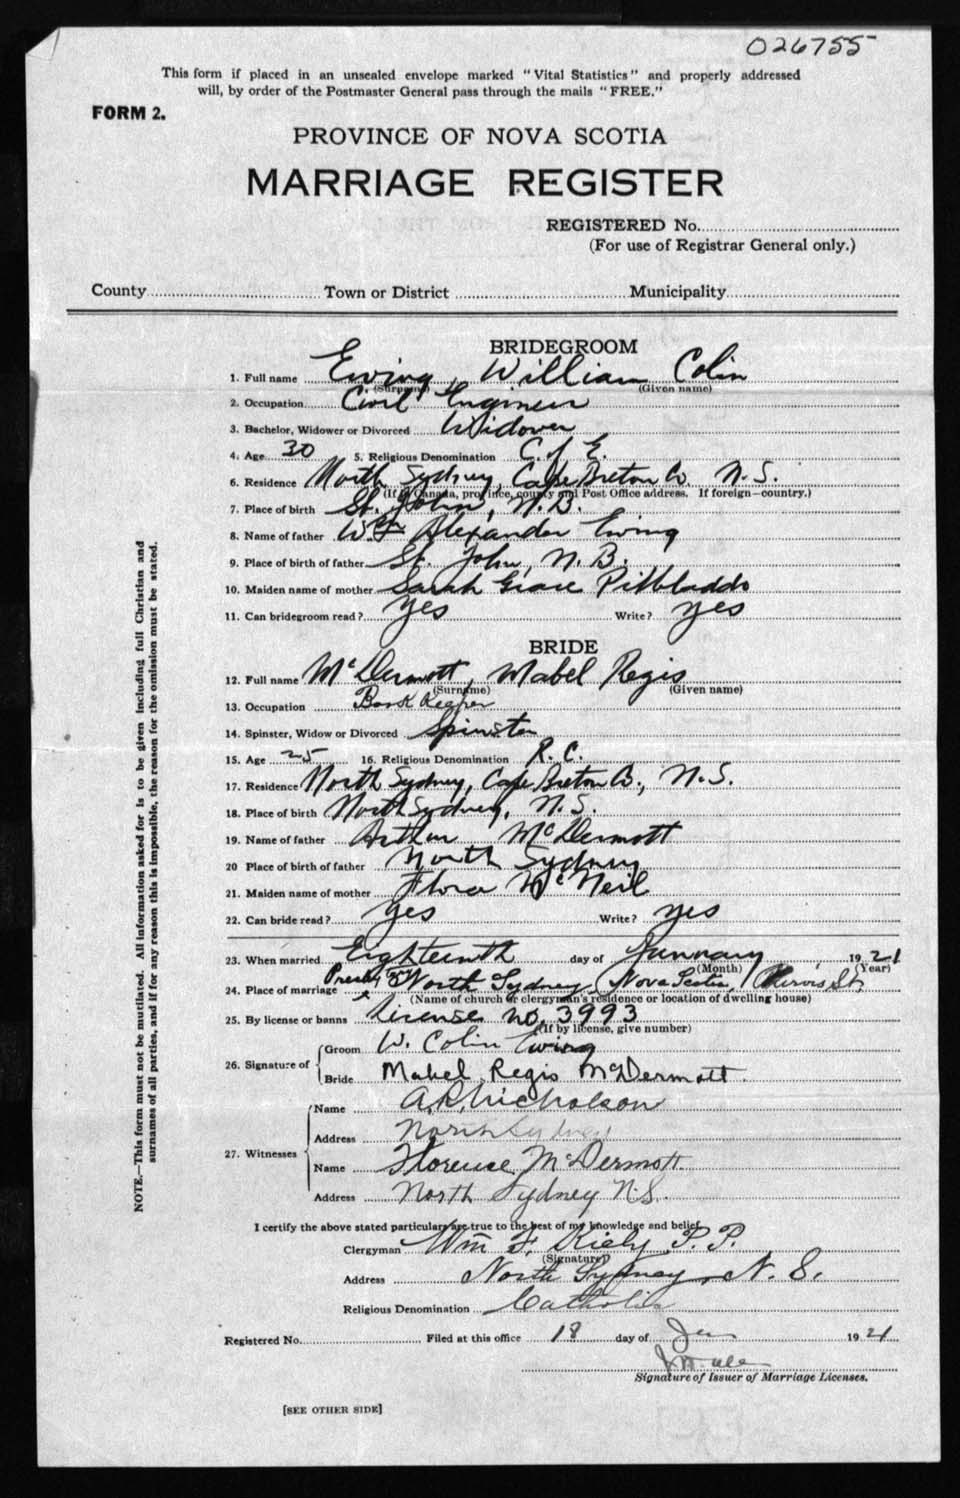 026755
This form if placed in an unsealed envelope marked "Vital Statistics" and properly addressed
will, by order of the Postmaster General pass through the mails "FREE."
FORM 2.
PROVINCE OF NOVA SCOTIA
MARRIAGE REGISTER
REGISTERED No.
(For use of Registrar General only.)
County Town or District Municipality
BRIDEGROOM
1. Full name Ewing, William Colin
(Surname) (Given name)
2. Occupation Civil Engineer
3. Bachelor, Widower or Divorced Widower
4. Age 30 5. Religious Denomination C. of E.
6. Residence North Sydney, Cape Breton Co. N.S.
(If in Canada, province, county and Post Office address. If foreign—country.)
7. Place of birth St. John, N.B.
8. Name of father Wm Alexander Ewing
9. Place of birth of father St. John, N.B.
10. Maiden name of mother Sarah Grace Pitbladdo
11. Can bridegroom read? Yes Write? Yes
BRIDE
12. Full name McDermott, Mabel Regis
(Surname) (Given name)
13. Occupation Book Keeper
14. Spinster, Widow or Divorced Spinster
15. Age 25 16. Religious Denomination R.C.
17. Residence North Sydney, Cape Breton Co., N.S.
18. Place of birth North Sydney, N.S.
19. Name of father Arthur McDermott
20 Place of birth of father North Sydney
21. Maiden name of mother Flora McNeil
22. Can bride read? Yes Write? Yes
23. When married Eighteenth day of January 1921
(Month) (Year)
24. Place of marriage North Sydney, Nova Scotia,
(Name of church or clergyman's residence or location of dwelling house)
25. By license or banns License no. 3993
(If by license, give number)
26. Signature of Groom W. Colin Ewing
Bride Mabel Regis McDermott.
27. Witnesses Name A. R. Nicholson
Address North Sydney
Name Florence McDermott
Address North Sydney N.S.
I certify the above stated particulars are true to the best of my knowledge and belief.
Clergyman Wm F. Kiely P.P.
(Signature)
Address North Sydney, N.S.
Religious Denomination Catholic
Registered No. Filed at this office 18 day of Jan 1921
Signature of Issuer of Marriage Licenses.
[SEE OTHER SIDE]
NOTE.—This form must not be mutilated. All information asked for is to be given including full Christian and
surnames of all parties, and if for any reason this is impossible, the reason for the omission must be stated.